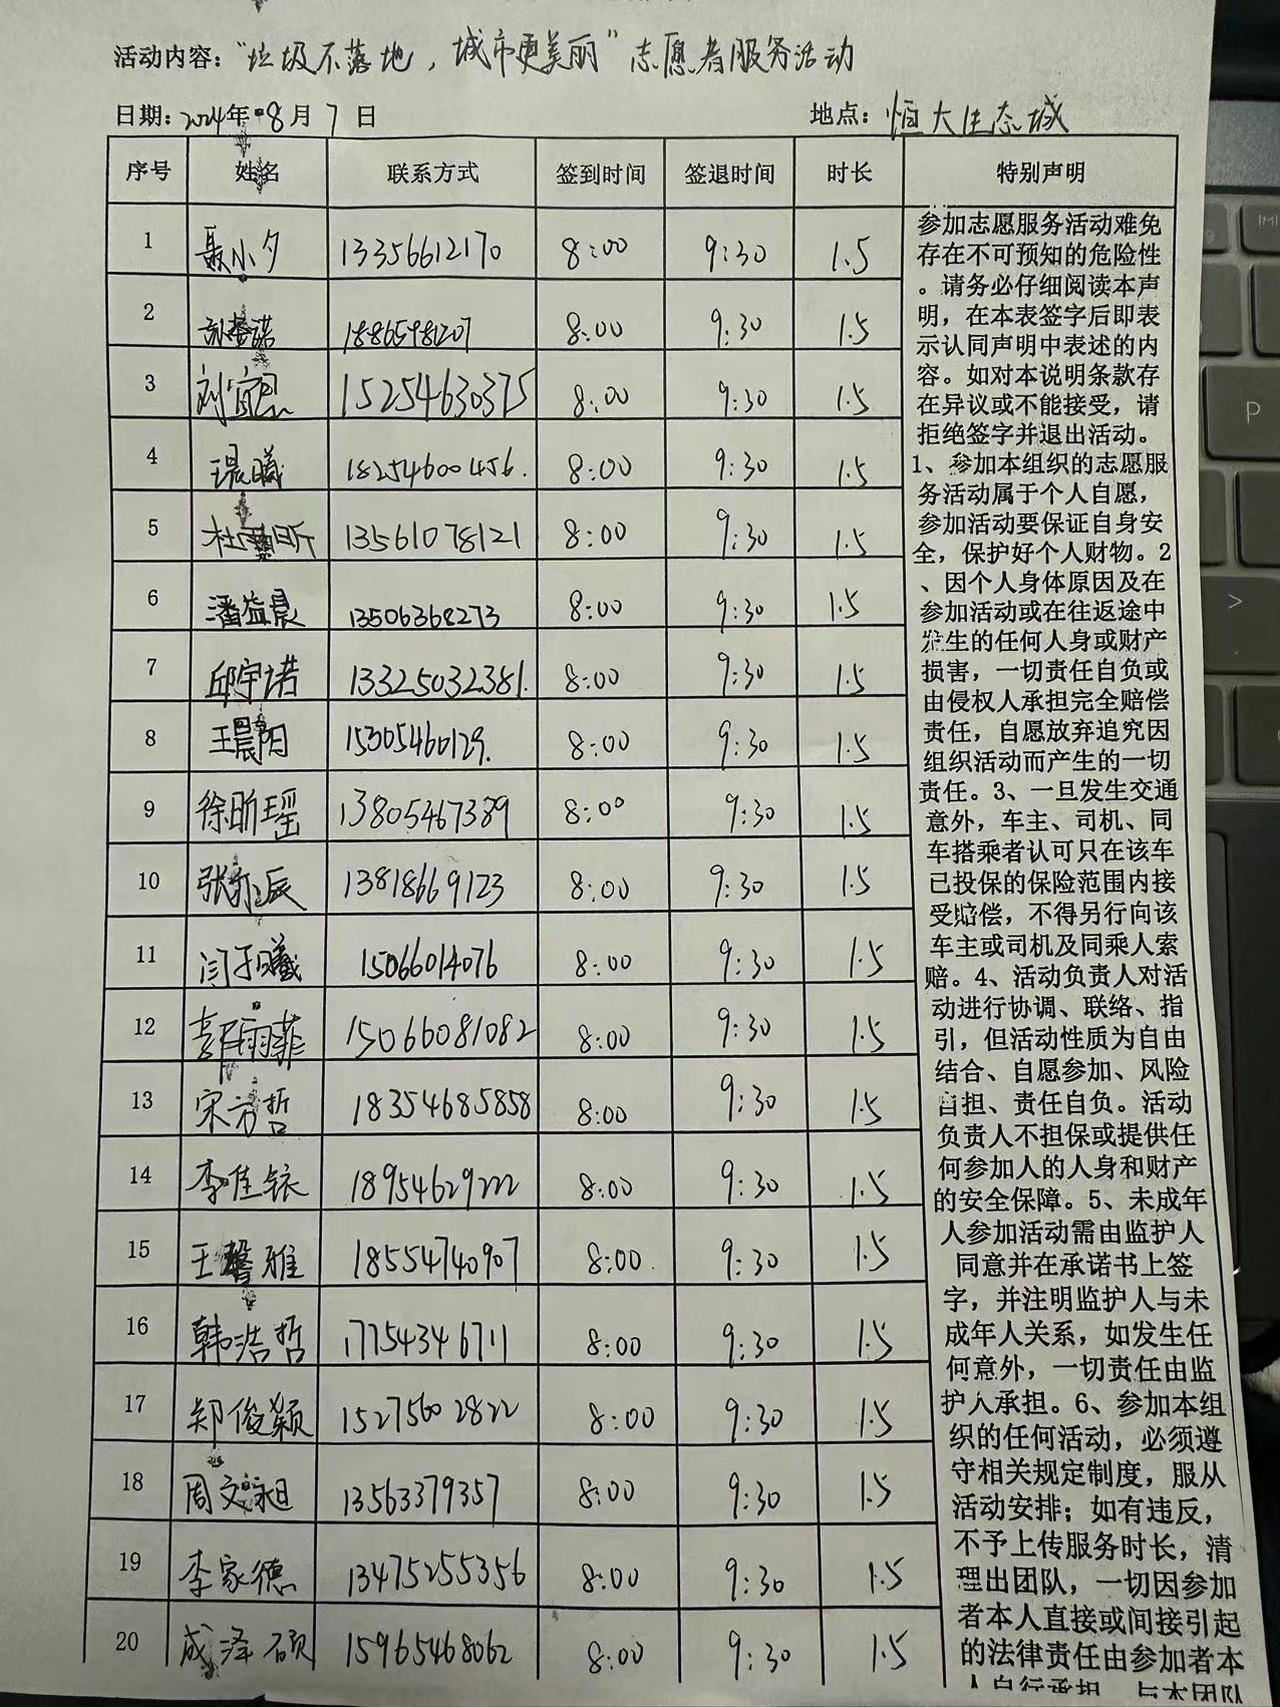 活动内容："垃圾不落地，城市更美丽"志愿者服务活动
日期：2024年8月7日 地点：恒大生态城
序号 姓名 联系方式 签到时间 签退时间 时长 特别声明
1 聂小夕 13356612170 8:00 9:30 1.5
2 18865981207 8:00 9:30 1.5
3 刘宜恩 15254630375 8:00 9:30 1.5
4 王晨曦 18254600456. 8:00 9:30 1.5
5 杜雨昕 13561078121 8:00 9:30 1.5
6 潘益晨 13506368273 8:00 9:30 1.5
7 邱宇诺 13325032381. 8:00 9:30 1.5
8 王晨阳 15305460129. 8:00 9:30 1.5
9 徐昕瑶 13805467389 8:00 9:30 1.5
10 张 辰 13818669123 8:00 9:30 1.5
11 闫子曦 15066014076 8:00 9:30 1.5
12 郭雨菲 15066081082 8:00 9:30 1.5
13 宋方哲 18354685858 8:00 9:30 1.5
14 李佳 18954629222 8:00 9:30 1.5
15 王馨雅 18554740907 8:00 9:30 1.5
16 韩浩哲 17754346711 8:00 9:30 1.5
17 郑俊颖 15275602822 8:00 9:30 1.5
18 周文 13563379357 8:00 9:30 1.5
19 李家德 13475255356 8:00 9:30 1.5
20 成泽硕 15965468062 8:00 9:30 1.5
参加志愿服务活动难免
存在不可预知的危险性
。请务必仔细阅读本声
明，在本表签字后即表
示认同声明中表述的内
容。如对本说明条款存
在异议或不能接受，请
拒绝签字并退出活动。
1、参加本组织的志愿服
务活动属于个人自愿，
参加活动要保证自身安
全，保护好个人财物。2
、因个人身体原因及在
参加活动或在往返途中
发生的任何人身或财产
损害，一切责任自负或
由侵权人承担完全赔偿
责任，自愿放弃追究因
组织活动而产生的一切
责任。3、一旦发生交通
意外，车主、司机、同
车搭乘者认可只在该车
已投保的保险范围内接
受赔偿，不得另行向该
车主或司机及同乘人索
赔。4、活动负责人对活
动进行协调、联络、指
引，但活动性质为自由
结合、自愿参加、风险
自担、责任自负。活动
负责人不担保或提供任
何参加人的人身和财产
的安全保障。5、未成年
人参加活动需由监护人
同意并在承诺书上签
字，并注明监护人与未
成年人关系，如发生任
何意外，一切责任由监
护人承担。6、参加本组
织的任何活动，必须遵
守相关规定制度，服从
活动安排；如有违反，
不予上传服务时长，清
理出团队，一切因参加
者本人直接或间接引起
的法律责任由参加者本
人自行承担，与本团队
P
>